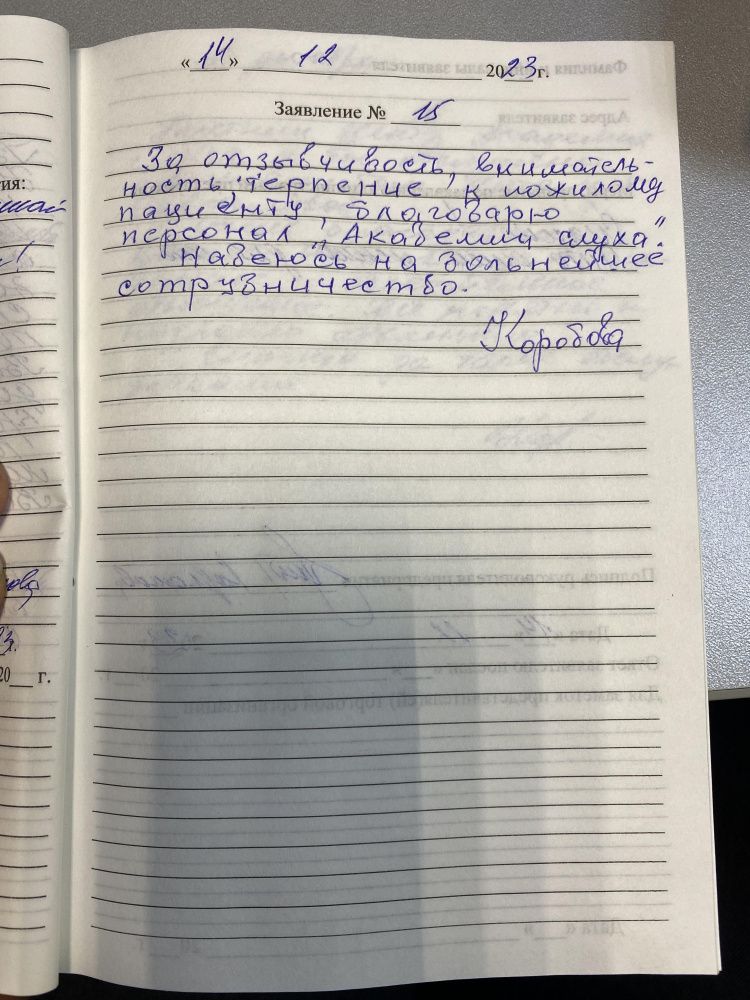 « 14 » 12 2023 г.
Заявление № 15
За отзывчивость, вниматель-
ность терпение к пожилому
пациенту, благодарю
персонал „Академии слуха".
Надеюсь на дольнейшее
сотрудничество.
Коробова
тия:
20 г.